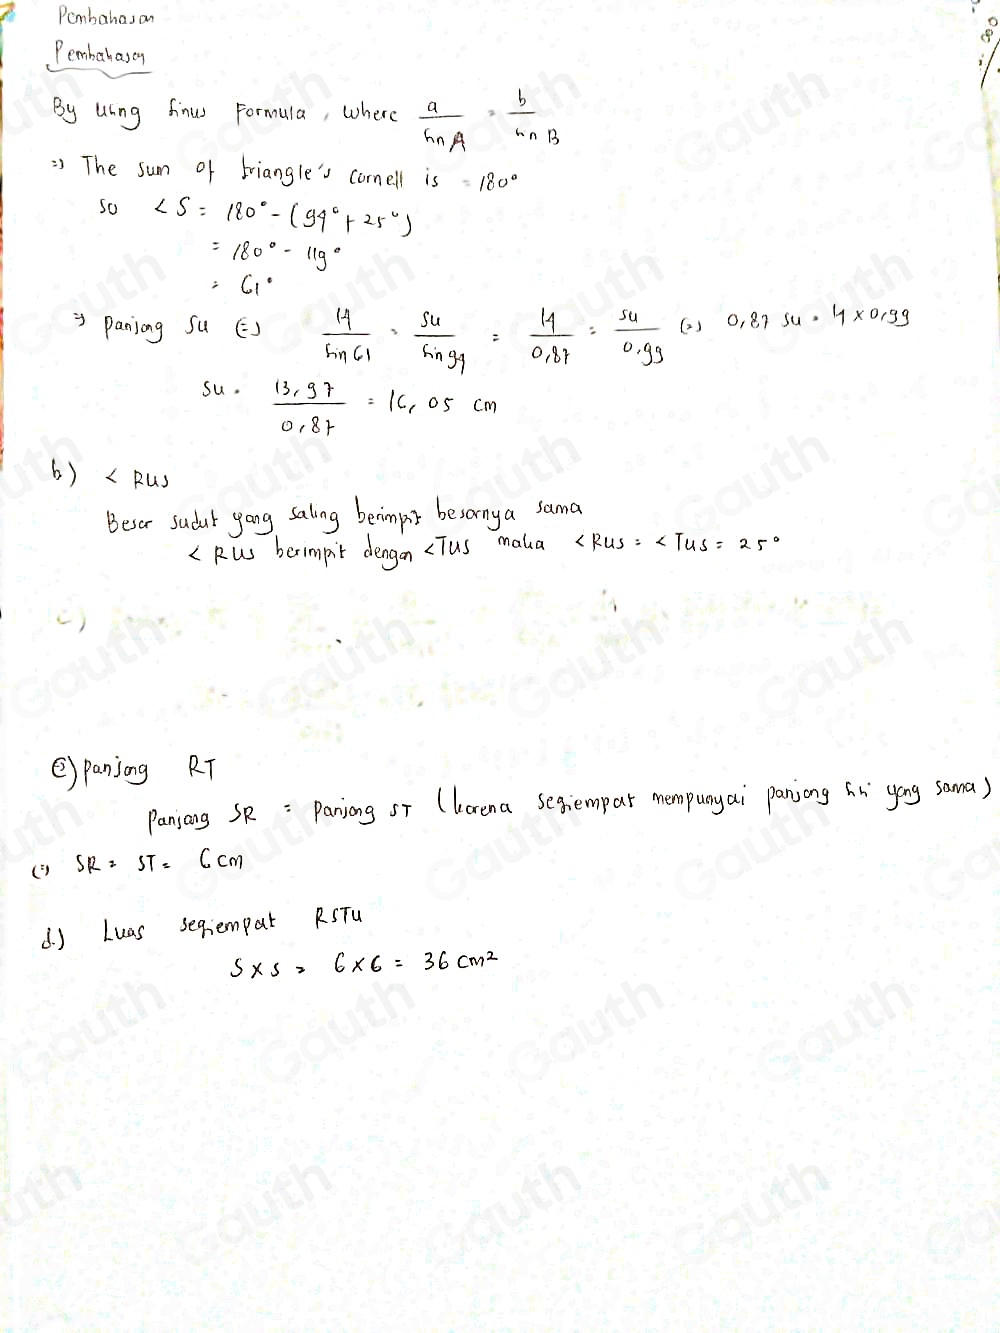 Pembahasan
Pembahasan
By using sinus Formula, where a/sin A = b/sin B
=> The sum of triangle's cornell is = 180°
so < S = 180° - (94° + 25°)
= 180° - 119°
= 61°
=> panjang SU (=) 14/sin 61 = SU/sin 94 = 14/0,87 = SU/0,99 (=) 0,87 SU = 14 x 0,99
SU = 13,97/0,87 = 16,05 cm
b) < RUS
Besar sudut yang saling berimpit besarnya sama
< RUS berimpit dengan < TUS maka < RUS = < TUS = 25°
c)
c) panjang RT
panjang SR = panjang ST (karena segiempat mempunyai panjang sisi yang sama)
(=) SR = ST = 6 cm
d.) Luas segiempat RSTU
S x s = 6 x 6 = 36 cm²